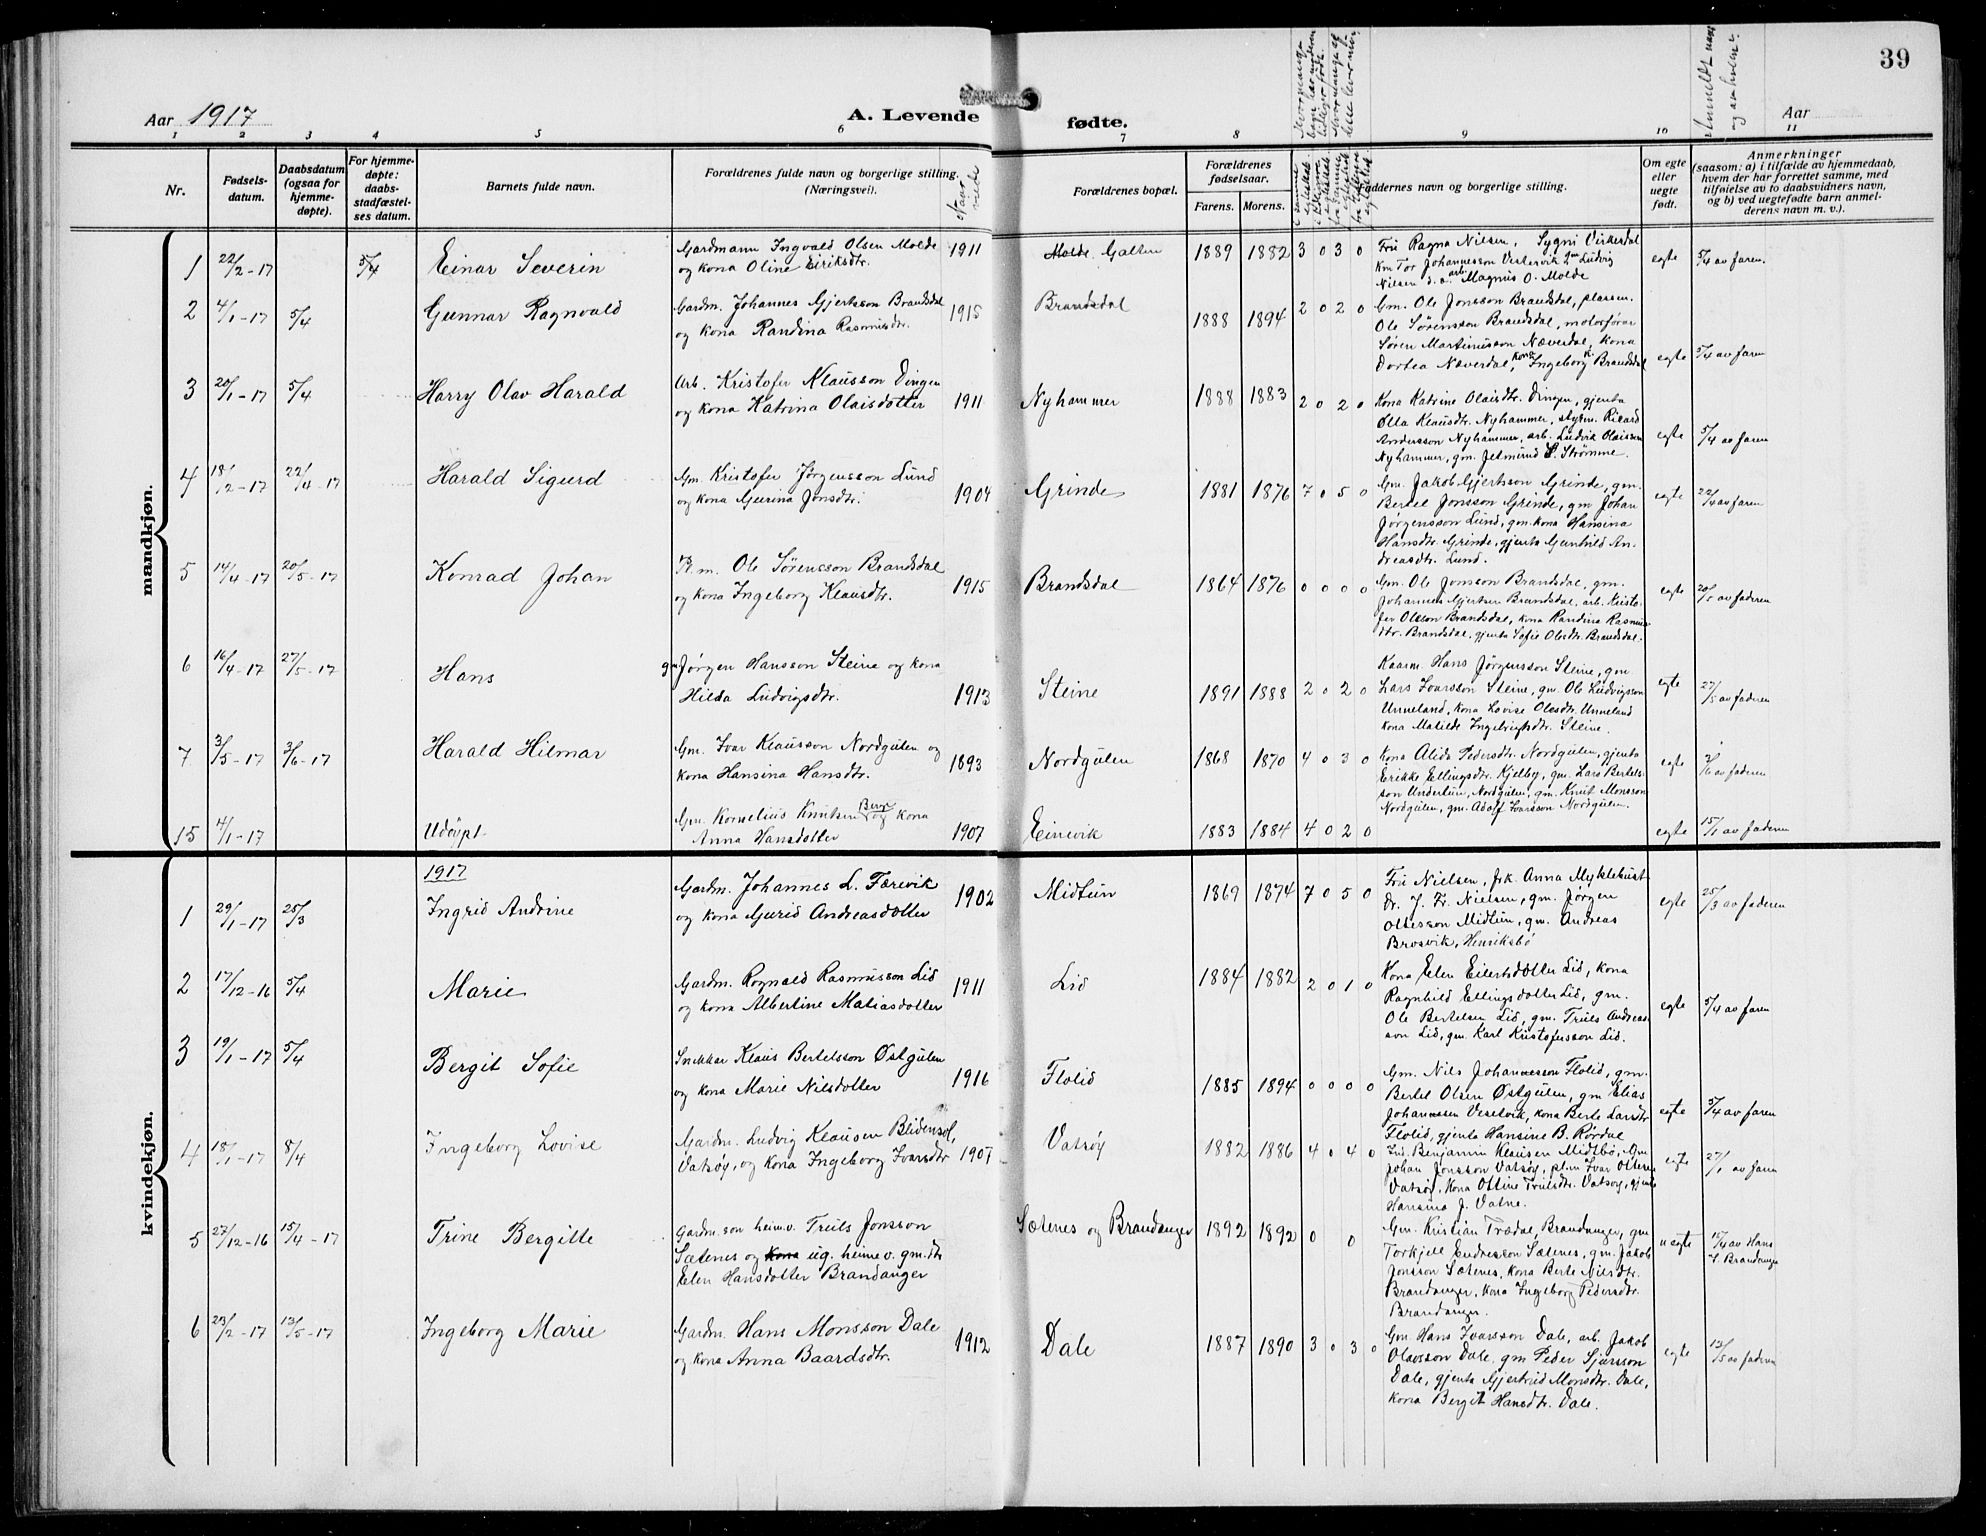 39
Aar 1917
A. Levende
fødte.
Aar
1 2 3 4 5 6 7 8 9 10 11
Nr.
Fødsels-
datum.
Daabsdatum
(ogsaa for
hjemme-
døpte).
For hjemme-
døpte:
daabs-
stadfæstel-
ses datum.
Barnets fulde navn.
Forældrenes fulde navn og borgerlige stilling.
(Næringsvei).
Naar
viede
Forældrenes bopæl.
Forældrenes
fødselsaar.
Farens. Morens.
Faddernes navn og borgerlige stilling.
Om egte
eller
uegte
født.
Anmeldt naar
og av hvem:
Anmerkninger
(saasom: a) i tilfælde av hjemmedaab,
hvem der har forrettet samme, med
tilføielse av to daabsvidners navn,
og b) ved uegtefødte barn anmel-
derens navn m. v.).
mandkjøn.
1 22/2-17 5/4 Einar Severin
Gardmann Ingvald Olsen Molde
og kona Oline Eiriksdtr.
1911 Molde Galten 1889 1882 3 0 3 0
Fru Ragna Nilsen, Sygni Virkesdal
Km Tor Johannesson Vestervik, gm Ludvig
Nilsen d. o. arb. Magnus O. Molde
egte 5/4 av faren.
2 4/1-17 5/4 Gunnar Ragnvald
Gardm. Johannes Gjertsson Brandsdal
og kona Randina Rasmusdtr.
1915 Brandsdal 1888 1894 2 0 2 0
Gm. Ole Jonsson Brandsdal, plassm.
Ole Sørensson Brandsdal, motorfører
Søren Martinusson Næverdal, kona
Dortea Næverdal, kona Ingeborg K. Brandsdal
egte 5/4 av faren
3 20/1-17 5/4 Harry Olav Harald
Arb. Kristofer Klausson Dingen
og kona Katrina Olaisdotter
1911 Nyhammer 1888 1883 2 0 2 0
Kona Katrine Olaisdtr. Dingen, gjenta
Olla Klausdtr. Nyhammer, styrm. Ricard
Andersson Nyhammer, arb. Ludvik Olaissen
Nyhammer, gm. Jetmund S. Strømme.
egte 5/4 av faren
4 18/2-17 22/4-17 Harald Sigurd
Gm. Kristofer Jørgensson Lund
og kona Gurina Jonsdtr.
1904 Grinde 1881 1876 7 0 5 0
Gm. Jakob Gjertson Grinde, gm.
Bertel Jonsson Grinde, gm Johan
Jørgensson Lund, gm. kona Hansina
Hansdtr. Grinde, gjenta Gunhild An-
dreasdtr. Lund.
egte 22/4 av faren
5 14/4-17 20/5-17 Konrad Johan
Pl.m. Ole Sørensson Brandsdal
og kona Ingeborg Klausdtr.
1915 Brandsdal 1864 1876 0 0 0 0
Gm. Ole Jonsson Brandsdal, gm.
Johannes Gjertsen Brandsdal, arb. Kristo-
fer Olsson Brandsdal, kona Randina Rasmus-
dtr. Brandsdal, gjenta Sofie Olsdtr. Brandsdal.
egte 20/5 av faderen
6 16/4-17 27/5-17 Hans
gm Jørgen Hansson Steine og kona
Hilda Ludvigsdtr.
1913 Steine 1891 1888 2 0 2 0
Kaarm. Hans Jørgensson Steine, gm.
Lars Ivarsson Steine, gm. Ole Ludvigsson
Unneland, kona Lovise Olesdtr. Unneland
kona Matilde Ingebrigtsdtr. Steine.
egte 27/5 av faderen
7 3/5-17 3/6-17 Harald Hilmar
Gm. Ivar Klausson Nordgulen og
kona Hansina Hansdtr.
1893 Nordgulen 1868 1870 4 0 3 0
Kona Alida Pedersdtr. Nordgulen, gjenta
Erikke Ellingsdtr. Kjelby, gm. Lars Bertels-
son Undertun, Nordgulen, gm. Knut Monsson
Nordgulen, gm. Adolf Ivarsson Nordgulen.
egte 3/6 av faderen
15 4/1-17 Udøypt
Gm. Kornelius Knutsen Berge og kona
Anna Hansdotter
1907 Einevik 1883 1884 4 0 2 0
egte 15/1 av faderen
kvindekjøn.
1917
1 29/1-17 25/3 Ingrid Andrine
Gardm. Johannes L. Færevik
og kona Gurid Andreasdotter
1902 Midtun 1869 1874 7 0 5 0
Fru Nielsen, frk. Anna Myklebust
Dr. J. Fr. Nielsen, gm. Jørgen
Ottesson Midtun, gm. Andreas
Brosvik, Henriksbø
egte 25/3 av faderen
2 17/12-16 5/4 Marie
Gardm. Rognald Rasmusson Lid
og kona Albertine Matiasdotter
1911 Lid 1884 1882 2 0 1 0
Kona Elen Eilertsdotter Lid, kona
Ragnhild Ellingsdotter Lid, gm.
Ole Bertelsen Lid, gm. Truls Andreas-
son Lid, gm. Karl Kristofersson Lid.
egte 5/4 av faren
3 19/1-17 5/4 Bergit Sofie
Snekkar Klaus Bertelsson Østgulen
og kona Marie Nilsdotter
1916 Flolid 1885 1894 0 0 0 0
Gm. Nils Johannesson Flolid, gm.
Bertel Olsen Østgulen, gm Elias
Johannessen Vesetvik, kona Berte Larsdtr
Flolid, gjenta Hansine B. Rørdal
egte 5/4 av faren
4 18/1-17 8/4 Ingeborg Lovise
Gardm. Ludvig Klausen Blidensol,
Vatsøy, og kona Ingeborg Ivarsdtr
1907 Vatsøy 1882 1886 4 0 4 0
Ind. Benjamin Klausen Midtbø, Gm
Johan Jonsson Vatsøy, pl.m Ivar Ottesen
Vatsøy, kona Ottine Trulsdtr. Vatsøy, gjenta
Hansina J. Vatne.
egte 27/1 av faren
5 27/12-16 15/4-17 Trine Bergitte
Gardm. son heim.v. Truls Jonsson
Sætenes og kona ug. heime v. gm. dtr
Elen Hansdotter Brandanger
Sætenes og Brandanger 1892 1892 0 0
Gm. Kristian Trædal, Brandanger, gm
Torkjell Endresson Sætenes, gm. Jakob
Jonsson Sætenes, kona Berte Nilsdtr.
Brandanger, kona Ingeborg Pedersdtr.
Brandanger.
uegte 15/4 av Hans
I. Brandanger
6 23/2-17 13/5-17 Ingeborg Marie
Gardm. Hans Monsson Dale
og kona Anna Baardsdtr.
1912 Dale 1887 1890 3 0 3 0
Gm. Hans Ivarsson Dale, arb. Jakob
Olavsson Dale, gm Peder Sjursson
Dale, gjenta Gjertrud Monsdtr. Dale,
kona Bergit Hansdtr. Dale.
egte 13/5 av faderen